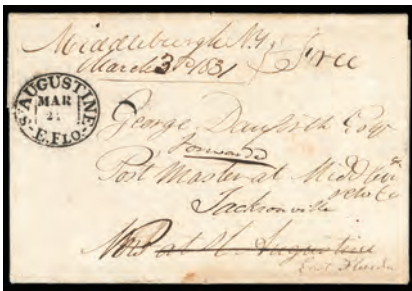 Middleburgh N.Y.
March 3d 1831
Free
ST. AUGUSTINE
MAR
E. FLO.
George Danforth Esq
Forward
Post Master at
Jacksonville
at St. Augustine
East Florida